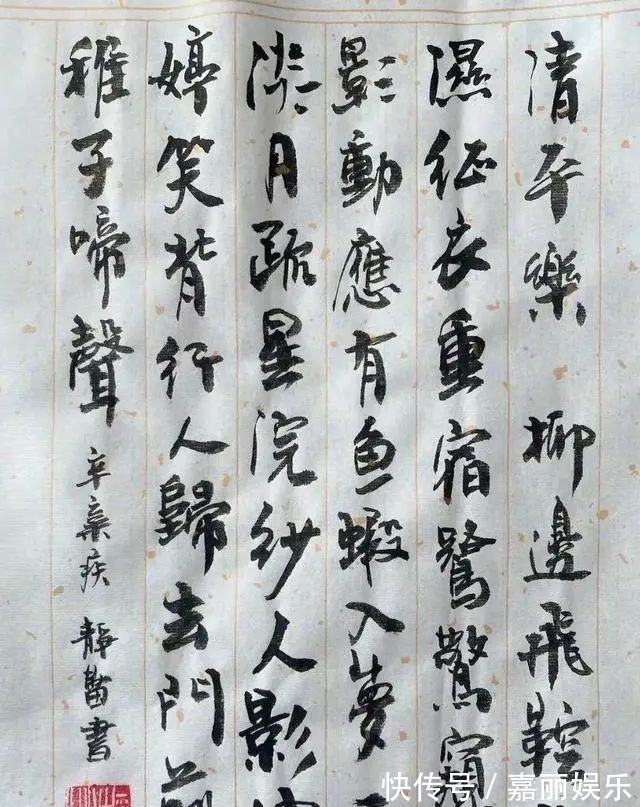 清平樂 柳邊飛鞚
濕征衣重宿鷺驚窺
影動應有鱼蝦入夢
淡月疏星浣紗人影
婷笑背行人歸去門前
稚子啼聲 辛棄疾 書
快传号/嘉丽娱乐